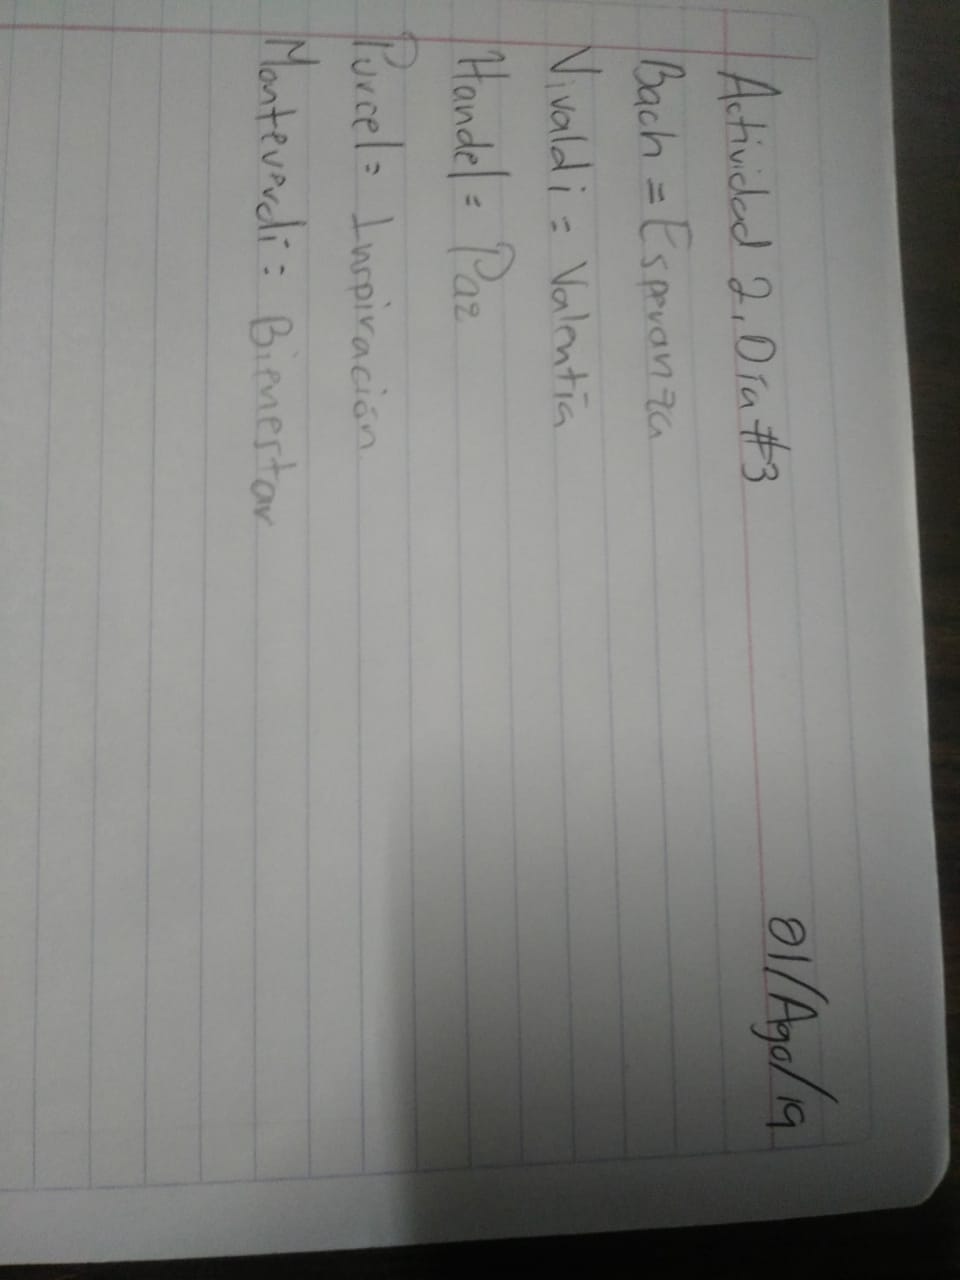 01/Ago/19
Actividad 2, Día #3
Bach = Esperanza
Vivaldi = Valentía
Handel = Paz
Purcel = Inspiración
Monteverdi = Bienestar